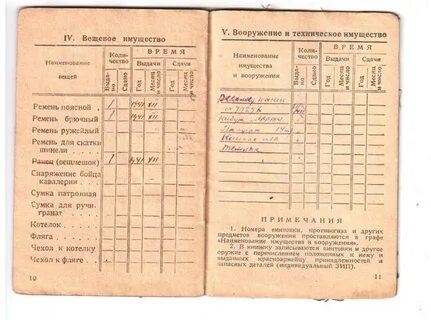 IV. Вещевое имущество
Наименование
вещей
Количество
ВРЕМЯ
Выдано
Сдано
Выдачи
Сдачи
Год
Месяц и число
Год
Месяц и число
Ремень поясной 1 1941 XII
Ремень брючный 1 1941 XII
Ремень ружейный
Ремень для скатки
шинели
Ранец (вещмешок) 1941 XII
Снаряжение бойца
кавалерии
Сумка патронная
Сумка для ручн.
гранат
Котелок
Фляга
Чехол к котелку
Чехол к фляге
10
V. Вооружение и техническое имущество
Наименование
имущества
и вооружения
Количество
ВРЕМЯ
Выдано
Сдано
Выдачи
Сдачи
Год
Месяц и число
Год
Месяц и число
ПРИМЕЧАНИЯ
1. Номера винтовки, противогаза и других
предметов вооружения проставляются в графе
«Наименование имущества и вооружения».
2. В книжку записываются винтовки и другое
оружие с перечислением положенных к нему и
выданных красноармейцу принадлежностей и
запасных деталей (индивидуальный ЗИП).
11